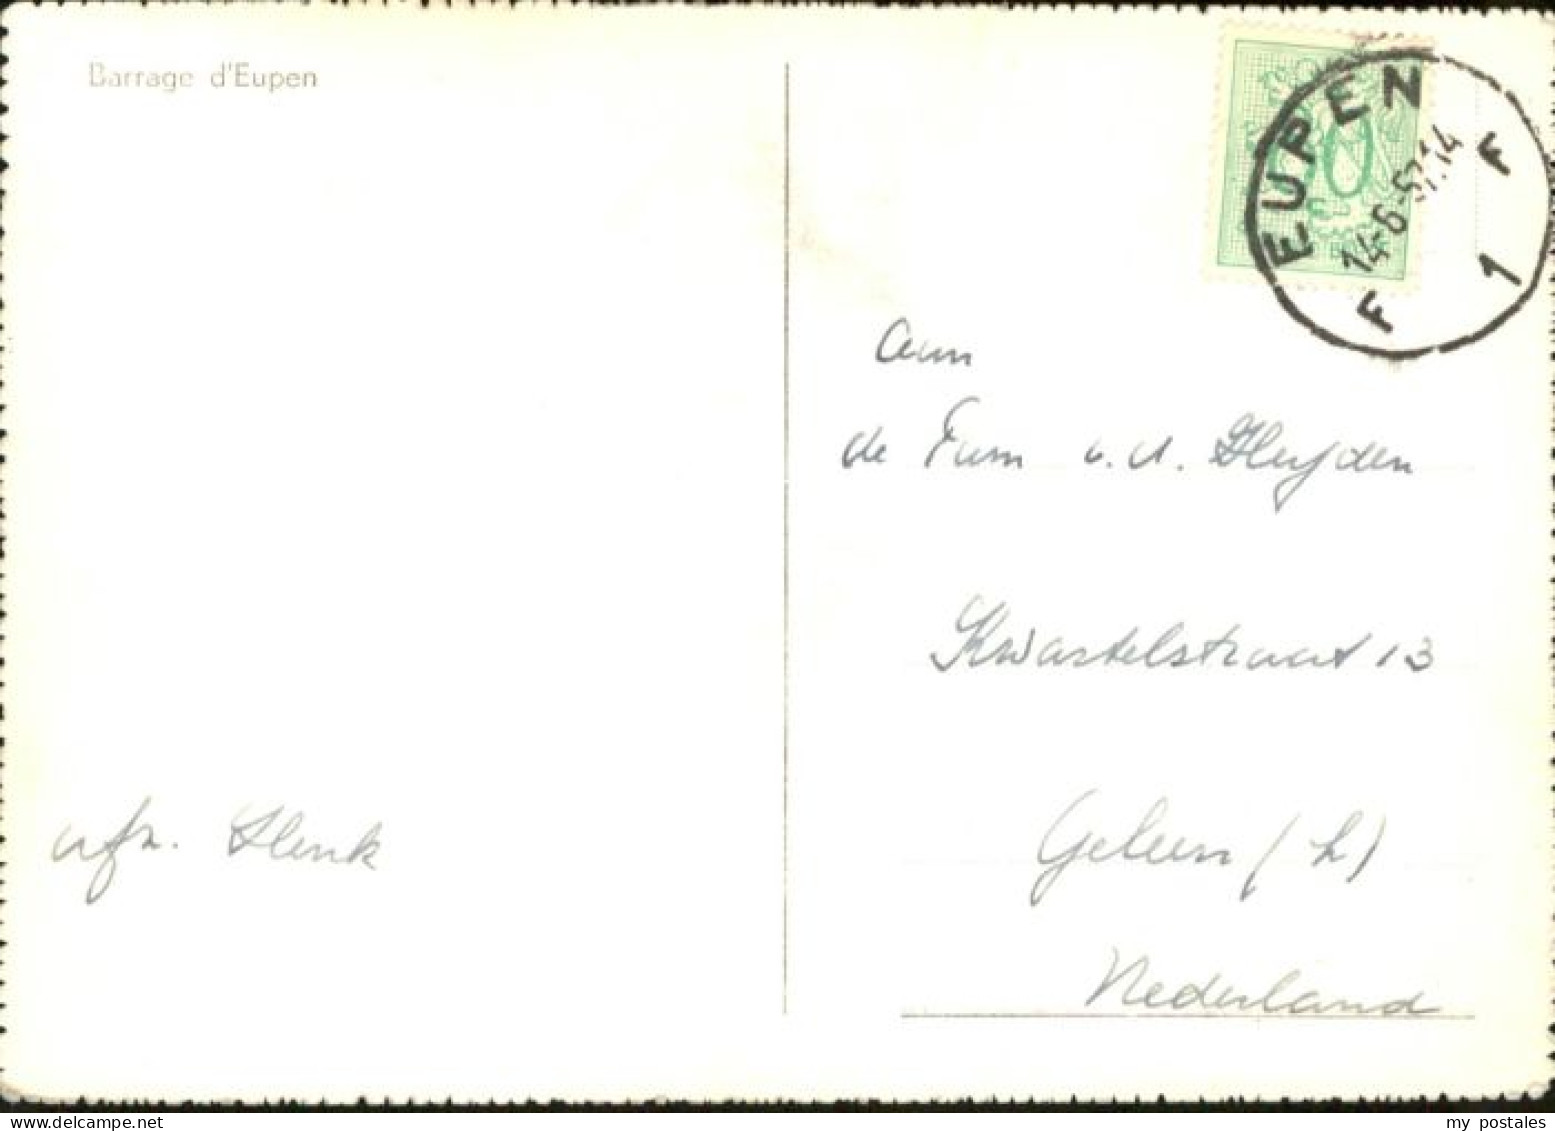 Barrage d'Eupen
EUPEN
14-6-57.14
F 1 F
Aan
de Fam v.d. Heyden
Kwartelstraat 13
Geleen (L)
Nederland
afz. Henk
delcampe.net
my_postales